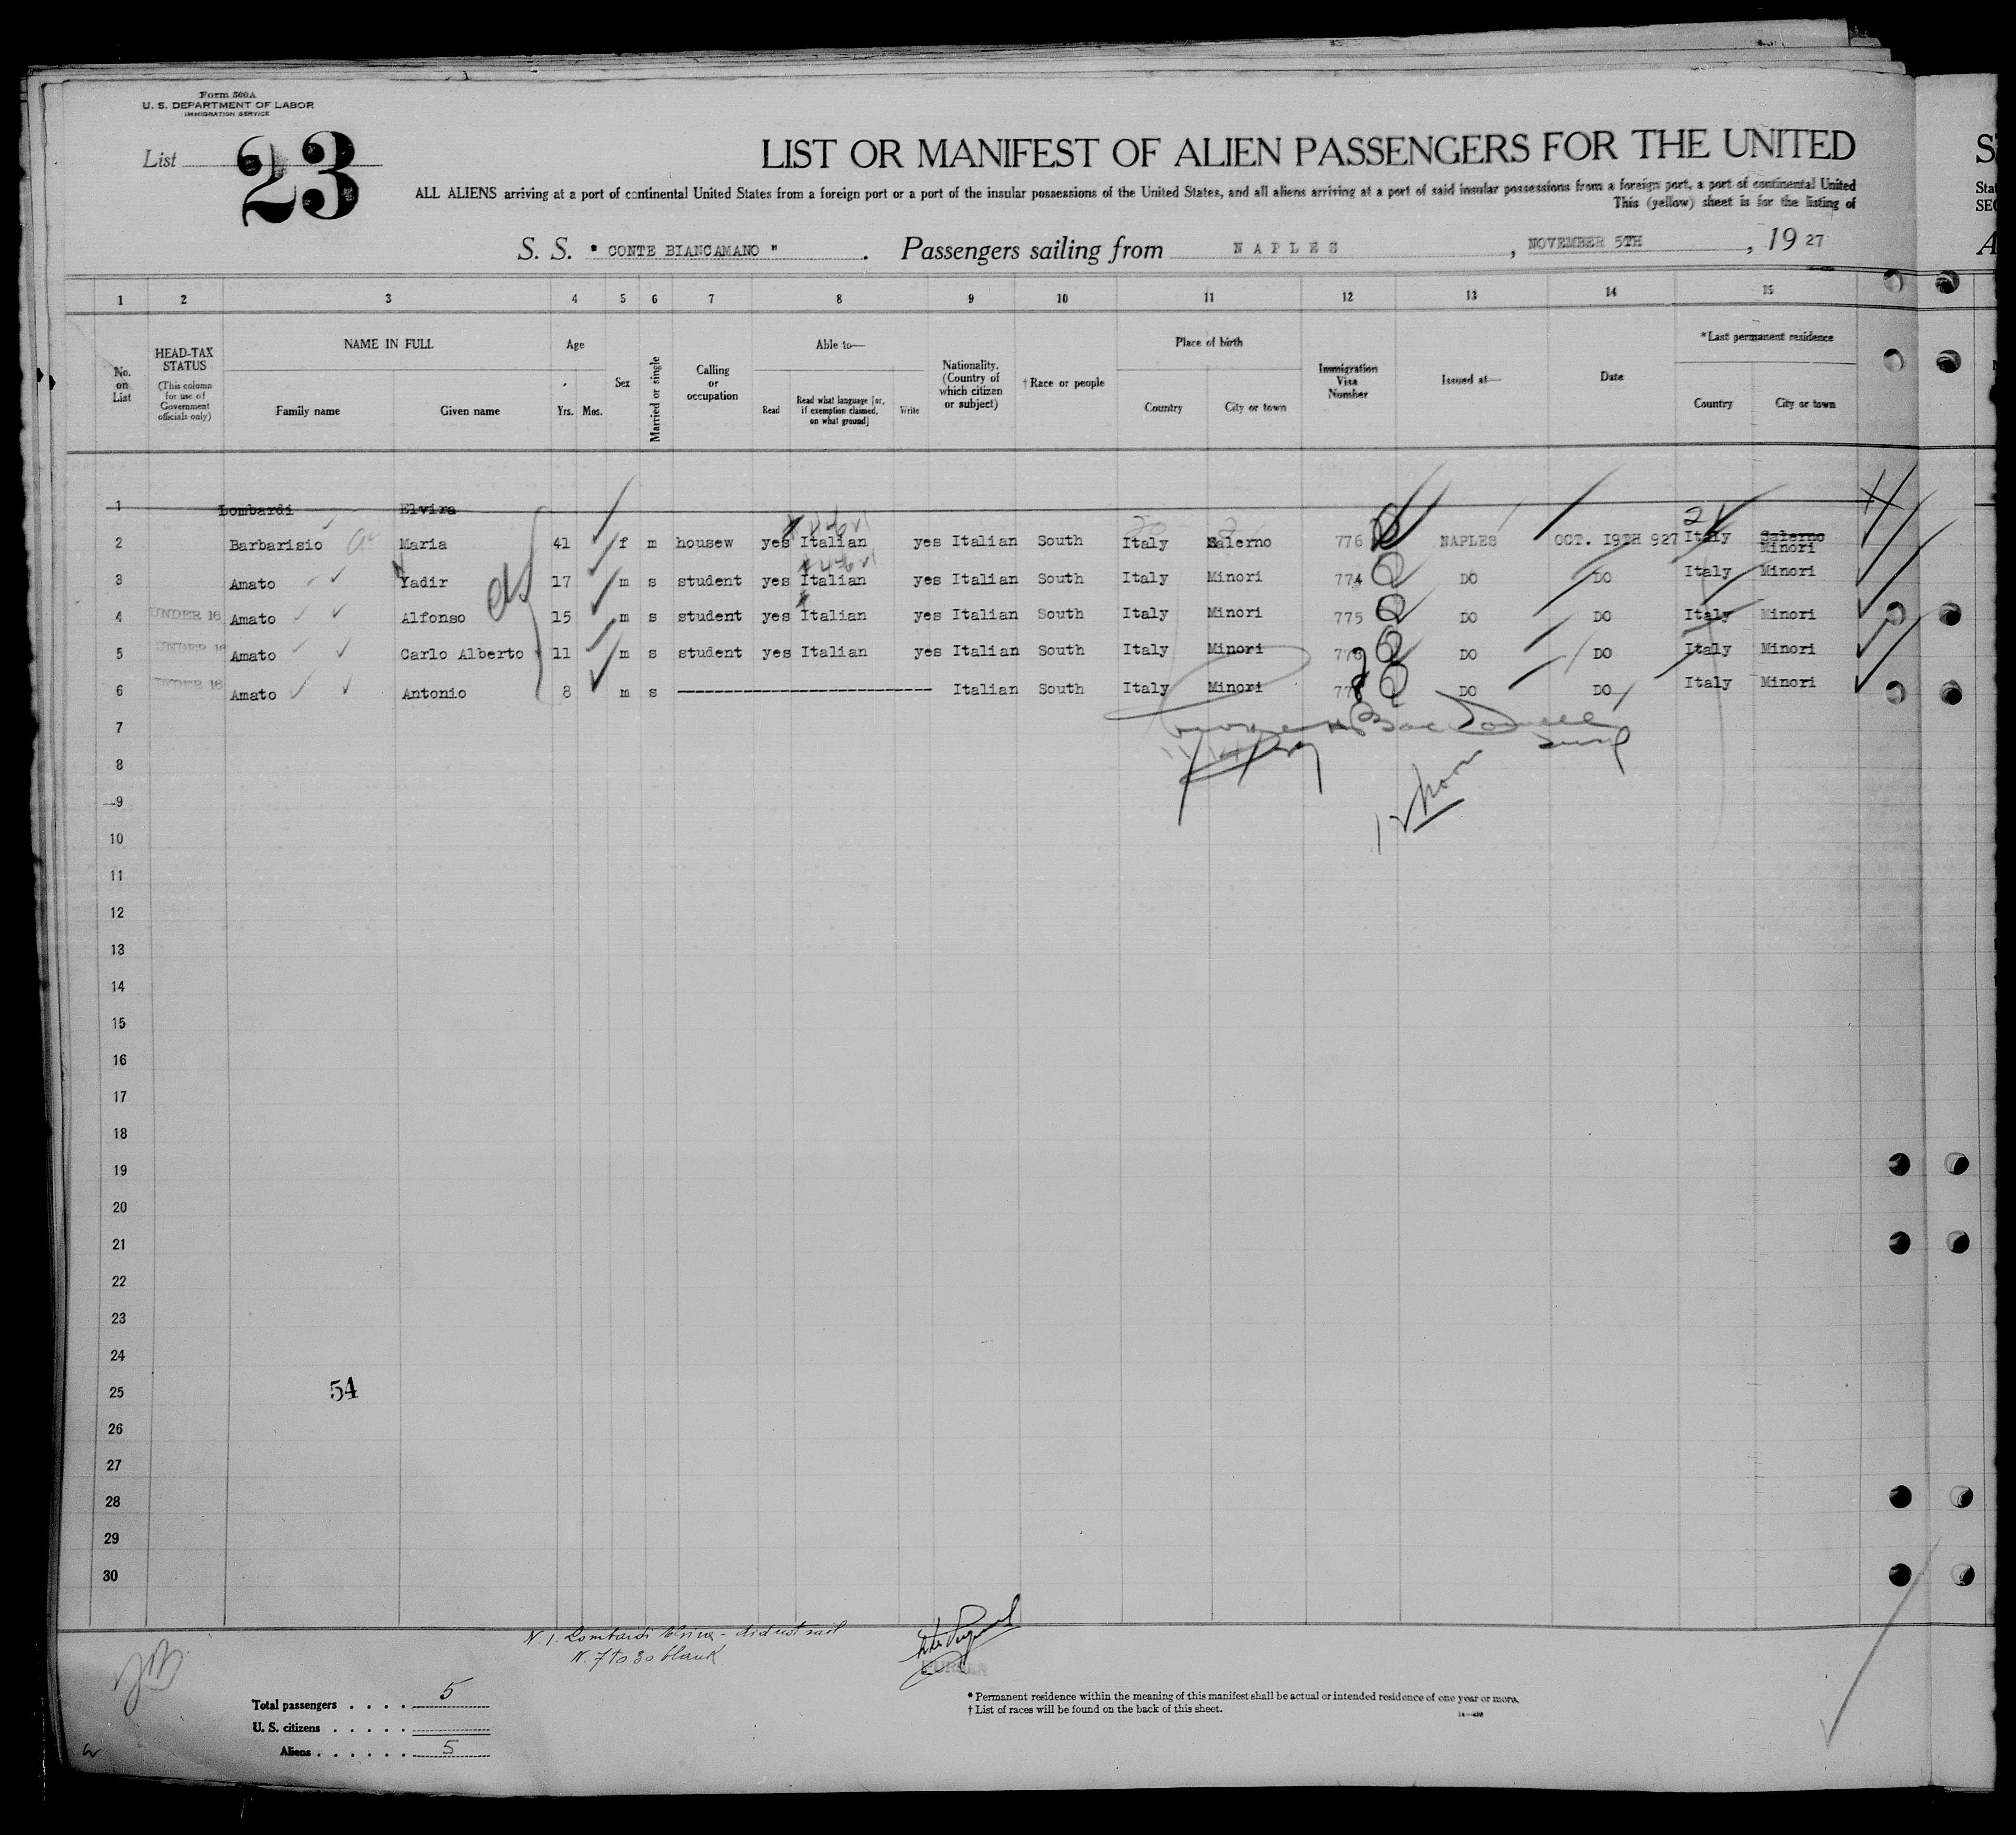 Form 500A
U. S. DEPARTMENT OF LABOR
IMMIGRATION SERVICE
List 23
LIST OR MANIFEST OF ALIEN PASSENGERS FOR THE UNITED
ALL ALIENS arriving at a port of continental United States from a foreign port or a port of the insular possessions of the United States, and all aliens arriving at a port of said insular possessions from a foreign port, a port of continental United
This (yellow) sheet is for the listing of
S. S. " CONTE BIANCAMANO ". Passengers sailing from NAPLES, NOVEMBER 5TH, 1927
1 2 3 4 5 6 7 8 9 10 11 12 13 14 15
No. on List
HEAD-TAX STATUS (This column for use of Government officials only)
NAME IN FULL
Family name Given name
Age
Yrs. Mos.
Sex
Married or single
Calling or occupation
Able to—
Read Read what language [or, if exemption claimed, on what ground] Write
Nationality. (Country of which citizen or subject)
† Race or people
Place of birth
Country City or town
Immigration Visa Number
Issued at—
Date
*Last permanent residence
Country City or town
1 Lombardi Elvira
2 Barbarisio Maria 41 f m housew yes Italian yes Italian South Italy Salerno 776 NAPLES OCT. 19TH 927 Italy Salerno Minori
3 Amato Yadir 17 m s student yes Italian yes Italian South Italy Minori 774 DO DO Italy Minori
4 UNDER 16 Amato Alfonso 15 m s student yes Italian yes Italian South Italy Minori 775 DO DO Italy Minori
5 UNDER 16 Amato Carlo Alberto 11 m s student yes Italian yes Italian South Italy Minori DO DO Italy Minori
6 UNDER 16 Amato Antonio 8 m s Italian South Italy Minori DO DO Italy Minori
7
8
9
12 noon
10
11
12
13
14
15
16
17
18
19
20
21
22
23
24
25 54
26
27
28
29
30
N. 1. Lombardi Elvira - did not sail
N. 7 to 30 blank
Total passengers . . . . 5
U. S. citizens . . . . .
Aliens . . . . . . 5
* Permanent residence within the meaning of this manifest shall be actual or intended residence of one year or more.
† List of races will be found on the back of this sheet.